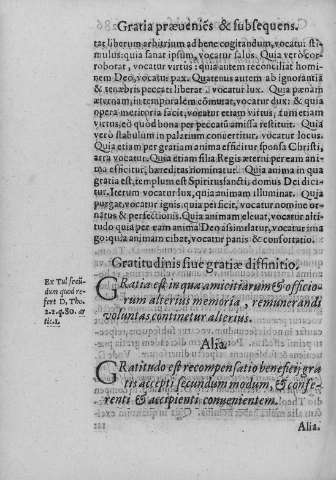 Gratia præueniēs & subsequens.
tat liberum arbitrium ad bene cogitandum, vocatur sti-
mulus: quia sanat ipsum, vocatur salus. Quia verò cor-
roborat, vocatur virtus: quia autem reconciliat homi-
nem Deo, vocatur pax. Quatenus autem ab ignorantia
& tenebris peccati liberat, vocatur lux. Quia pœnam
æternam, in temporalem cōmutat, vocatur dux: & quia
opera meritoria facit, vocatur etiam virtus, tum etiam
victus, eò quòd bona per peccatū amissa restituit. Quia
verò stabulum in palatium conuertitur, vocatur locus.
Quia etiam per gratiam anima efficitur sponsa Christi,
arra vocatur. Quia etiam filia Regis æterni per eam ani-
ma efficitur, hæreditas nominatur. Quia anima in qua
gratia est, templum est Spiritus sancti, domus Dei dici-
tur. Iterum vocatur lux, quia animam illuminat. Quia
purgat, vocatur ignis: quia perficit, vocatur nomine or-
natus & perfectionis. Quia animam eleuat, vocatur alti-
tudo: quia per eam anima Deo assimilatur, vocatur ima
go: quia animam cibat, vocatur panis & confortatio.
Gratitudinis siue gratiæ diffinitio.
Ex Tul secū-
dum quod re-
fert D, Tho.
2.2.q.80. ar
tic.1.
GRatia est in qua amicitiarum & officio-
rum alterius memoria, remunerandi
voluntas continetur alterius.
Alia.
GRatitudo est recompensatio beneficij gra
tis accepti secundum modum, & confe-
renti & accipienti conuenientem.
Alia.